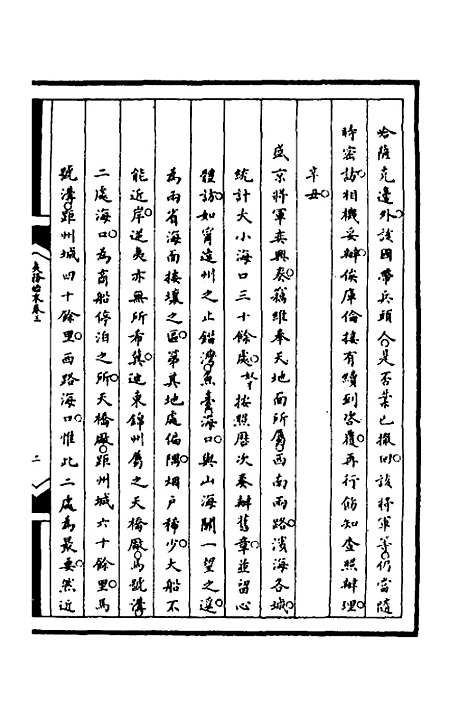 哈薩克邊外。該國帶兵頭人。是否業已撤回。該將軍等。仍當隨
時密訪。相機妥辦。俟庫倫接有續到咨覆。再行飭知查照辦理。
辛丑。
盛京將軍奕興奏。竊維奉天地面所屬。西南兩路。濱海各城。
統計大小海口三十餘處。奴才按照歷次奏辦舊章。並留心
體訪。如甯遠州之止錨灣。魚臺海口。與山海關一望之遙。
為兩省海面接壤之區。第其地處偏隅。烟戶稀少。大船不
能近岸。逆夷亦無所希冀。迤東錦州屬之天橋廠。馬號溝。
二處海口。為商船停泊之所。天橋廠。距州城六十餘里。馬
號溝。距州城四十餘里。西路海口。惟此二處為最要。然近
夷務始末卷三
二